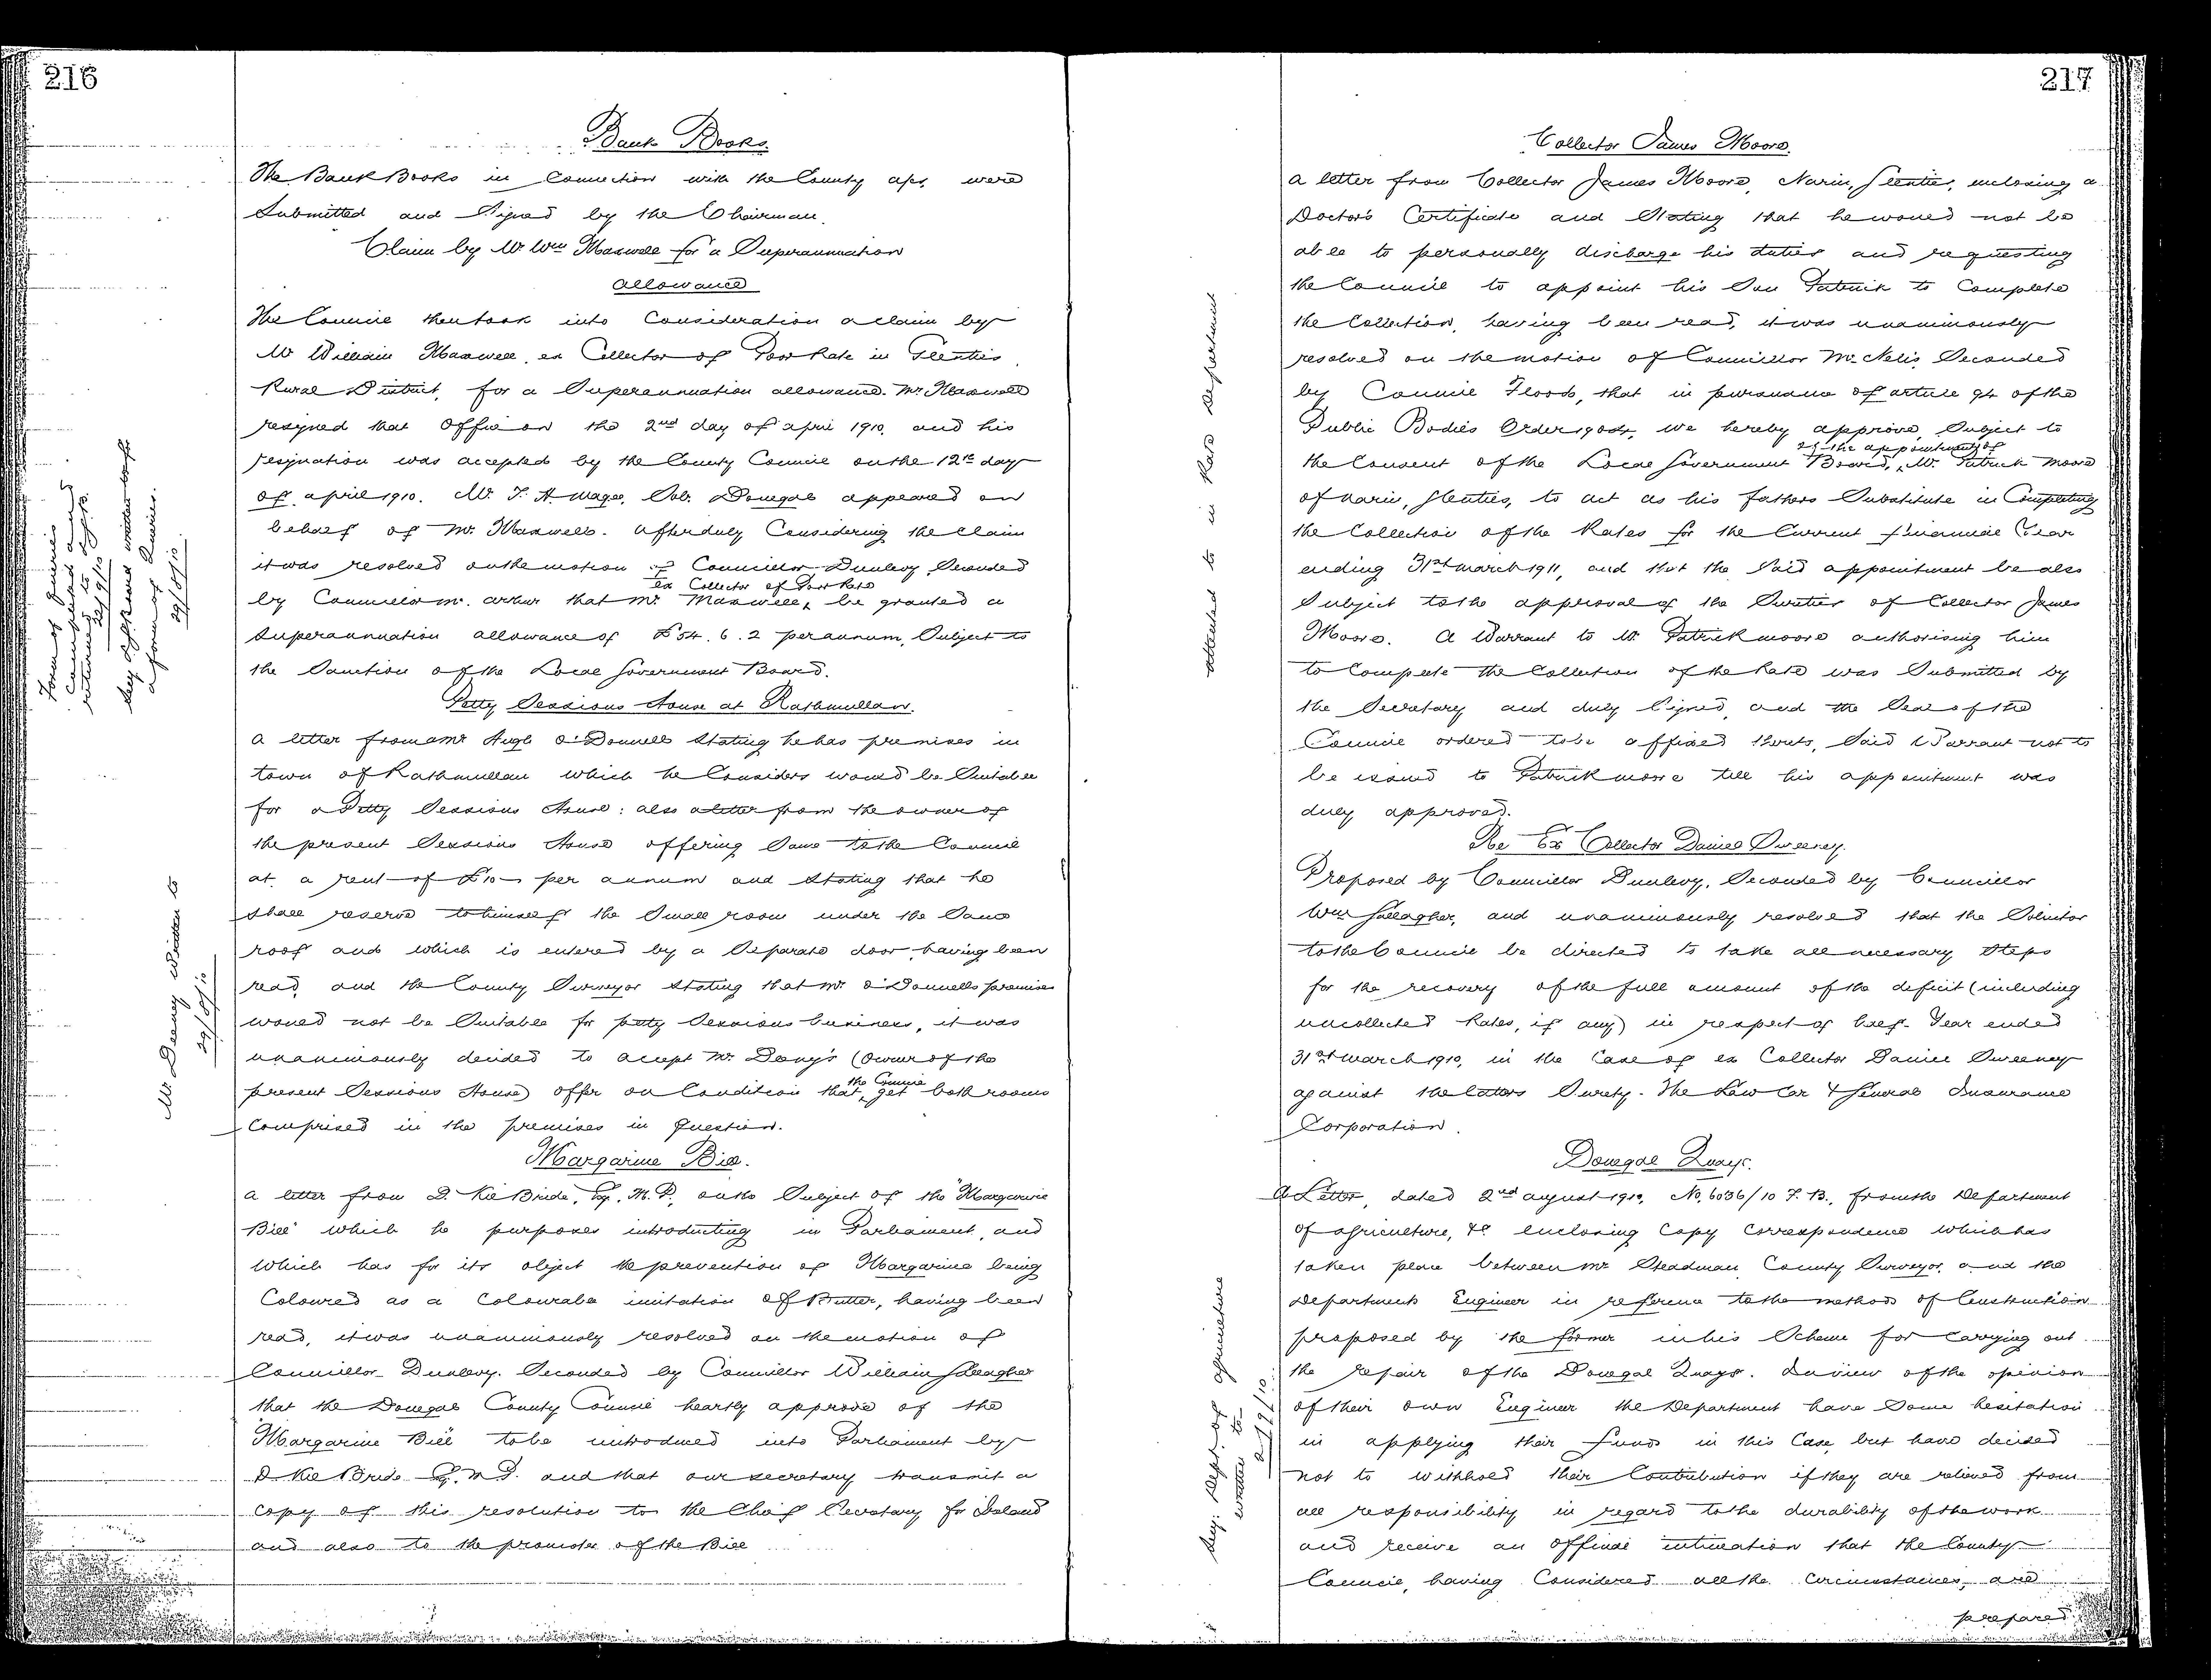 216
Bank Books.
The Bank Books in Connection with the County a/cs. were
Submitted and Signed by the Chairman.
Claim by Mr. Wm Maxwell for a Superannuation
allowance
The Council then took into Consideration a claim by
Mr William Maxwell, ex Collector of Poor Rate in Glenties
Rural District, for a Superannuation allowance. Mr. Maxwell
resigned that Office on the 2nd day of april 1910, and his
resignation was accepted by the County Council on the 12th day
of april 1910. Mr. J. A. Magee, Sol. Donegal appeared on
behalf of Mr. Maxwell. After duly Considering the Claim
it was resolved on the motion of Councillor Dunlevy Seconded
ex Collector of Poor Rate
by Councillor that Mr. Maxwell, be granted a
Superannuation allowance of £54. 6. 2 per annum, Subject to
the Sanction of the Local Government Board.
Petty Sessions House at Rathmullan.
a letter from Mr Hugh O'Donnell Stating he has premises in
town of Rathmullan which he Considers would be Suitable
for a Petty Sessions House: also a letter from the owner of
the present Sessions House offering Same to the Council
at a rent of £10 per annum and Stating that he
shall reserve to himself the Small room under the Same
roof and which is entered by a Separate door, having been
read, and the County Surveyor Stating that Mr. O'Donnells premises
would not be Suitable for petty Sessions business, it was
unanimously decided to accept Mr. Deny's (Owner of the
the Council
present Sessions House) offer on Condition that, get both rooms
Comprised in the premises in Question.
Margarine Bill.
a letter from Esq. M.P. on the Subject of the "Margarine
Bill" which he purposes introducting in Parliament, and
which has for its object the prevention of Margarine being
Coloured as a Colourable imitation of Butter, having been
read, it was unanimously resolved on the motion of
Councillor Dunlevy. Seconded by Councillor William Gallagher
that the Donegal County Council heartily approve of the
Margarine Bill to be introduced into Parliament by
Esq. M.P. and that our secretary transmit a
copy of this resolution to the Chief Secretary for Ireland
and also to the promoter of the Bill
written to
29/8/10
217
Collector James Moore.
a letter from Collector James Moore, Narin, Glenties, enclosing a
Doctor's Certificate and Stating that he would not be
able to personally discharge his duties and requesting
the Council to appoint his Son Patrick to Complete
the Collection, having been read, it was unanimously
resolved on the motion of Councillor McNelis Seconded
by Council Flood, that in pursuance of article 94 of the
Public Bodies Order 1904, we hereby approve, Subject to
of the appointment of
the Consent of the Local Government Board, Mr. Patrick Moore
of Narin, Glenties, to act as his fathers Substitute in Completing
the Collection of the Rates for the Current financial Year
ending 31st March 1911, and that the Said appointment be also
Subject to the approval of the Sureties of Collector James
Moore. A Warrant to Mr. Patrick Moore authorising him
to Complete the Collection of the Rate was Submitted by
the Secretary and duly Signed, and the Seal of the
Council ordered to be affixed thereto, Said Warrant not to
be issued to Patrick Moore till his appointment was
duly approved.
Re Ex Collector Daniel Sweeney.
Proposed by Councillor Dunlevy, Seconded by Councillor
Wm Gallagher, and unanimously resolved that the Solicitor
to the Council be directed to take all necessary Steps
for the recovery of the full amount of the deficit (including
uncollected Rates, if any) in respect of Year ended
31st March 1910, in the Case of ex Collector Daniel Sweeney
against the latter's Surety. The Law Car & General Insurance
Corporation.
Donegal Quays.
A Letter, dated 2nd august 1910, No. 6036/10 F.B., from the Department
of agriculture, &c enclosing Copy Correspondence which has
taken place between Mr Steadman County Surveyor, and the
Departments Engineer in reference to the methods of Construction
proposed by the former in his Scheme for Carrying out
the repair of the Donegal Quays. In view of the opinion
of their own Engineer the Department have Some hesitation
in applying their funds in this Case, but have decided
not to withhold their Contribution if they are relieved from
all responsibility in regard to the durability of the work
and receive an official intimation that the County
Council, having Considered all the Circumstances, are
prepared
attended to in Rate Department
Dept. of agriculture
written to